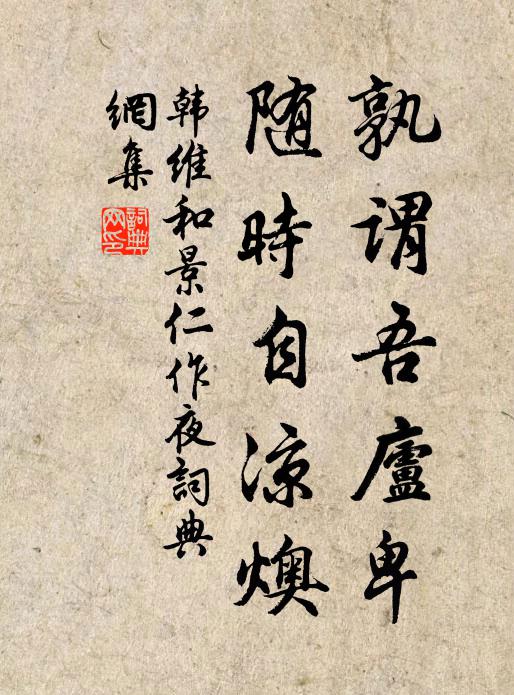 孰謂吾廬卑
随時自涼燠
韩維和景仁作夜詞典
網集
詞典
网印